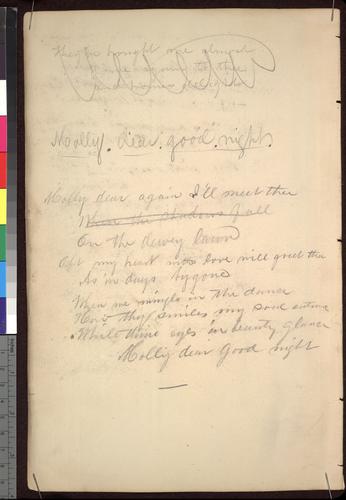 They've brought me almost
to thee
Molly. dear. good. night.
Molly dear again I'll meet thee
When the shadows fall
On the dewey lawn
Oft my heart with love will greet thee
As in days bygone
When we mingle in the dance
How thy smiles my soul entrance
While thine eyes in beauty glance
Molly dear Good night